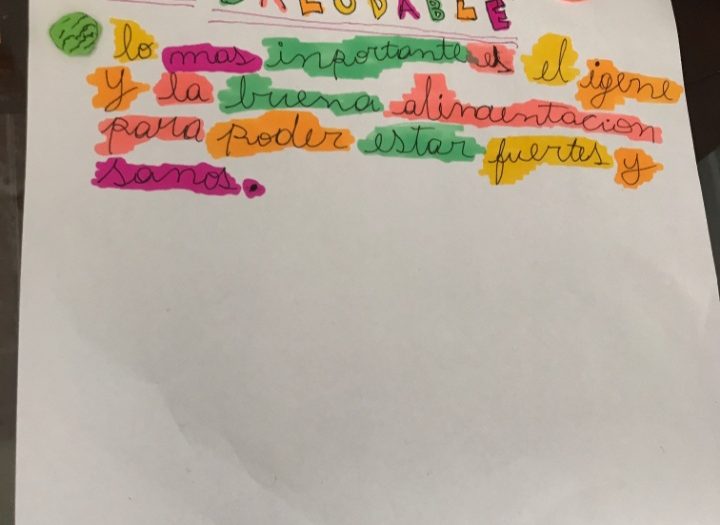 SALUDABLE
lo mas inportante es el igene
y la buena alimentacion
para poder estar fuertes y
sanos.